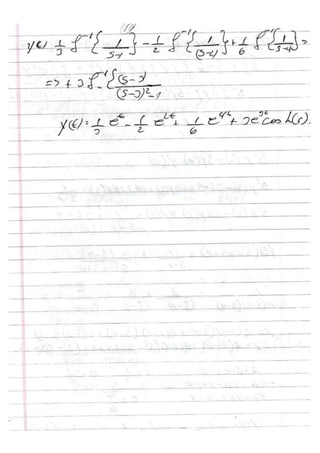 y(t) = 1/3 ℒ⁻¹{1/(s-1)} - 1/2 ℒ⁻¹{1/(s-2)} + 1/6 ℒ⁻¹{1/(s-4)} =
=> + 3 ℒ⁻¹{(s-3)/((s-3)²-1
y(t) = 1/3 e^t - 1/2 e^2t + 1/6 e^4t + 3e^3t cosh(t).